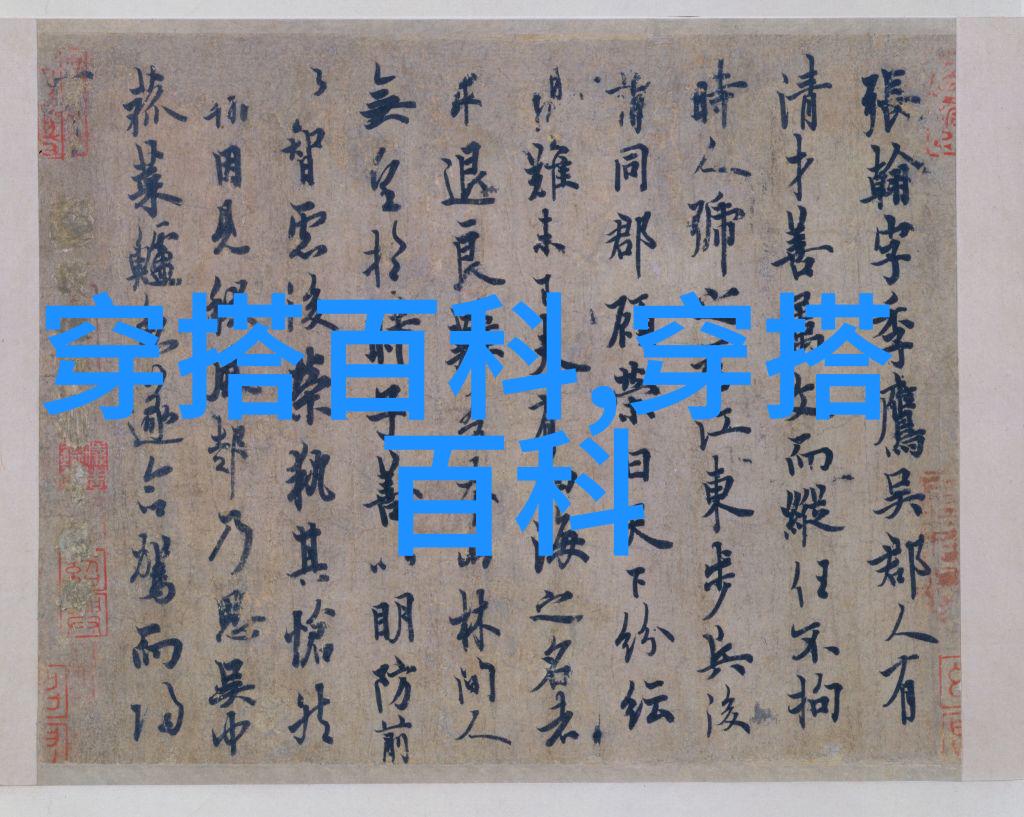 穿搭百科,穿搭
百科
張翰字季鷹吳郡人有
清才善屬文而縱任不拘
時人號江東步兵後
同郡顧榮曰天下紛紜
難未夫有海之名者
求退良難本山林間人
無望於時子善以明防前
智慮後榮執其愴然
翰因見起乃思吳中
菰菜鱸遂命駕而歸